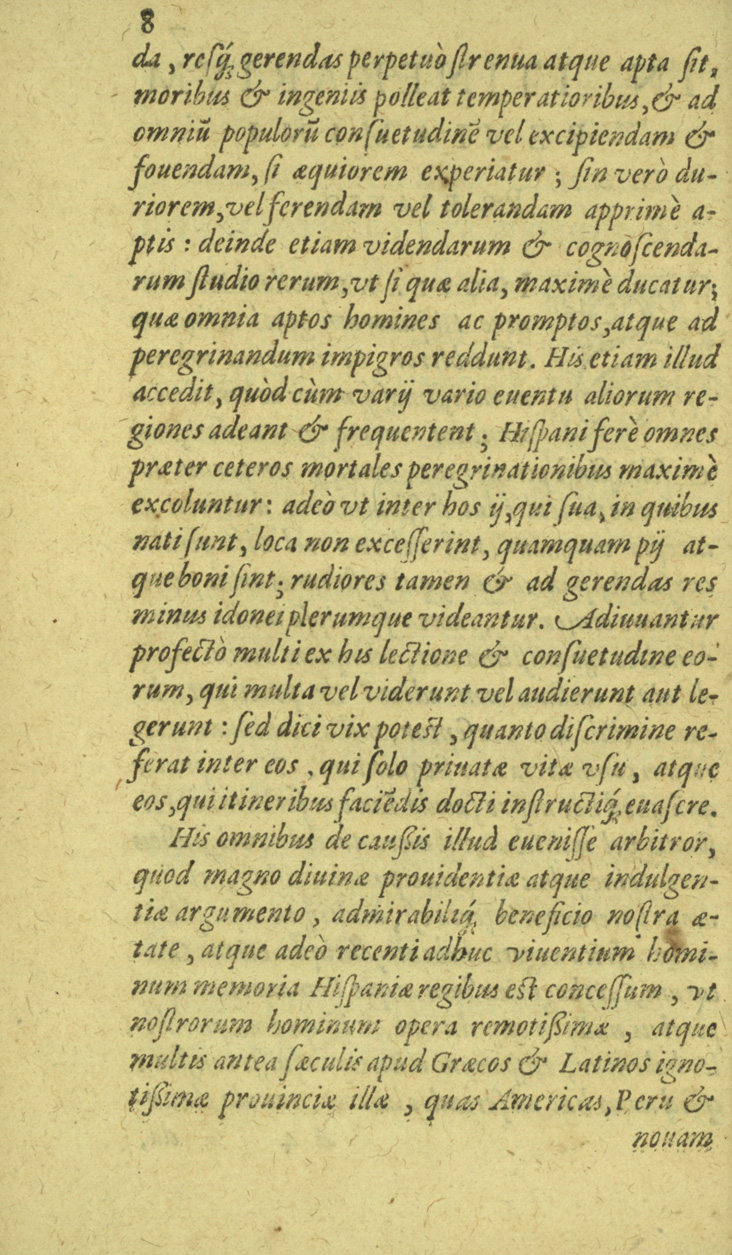 8
da, resq́; gerendas perpetuò strenua atque apta sit,
moribus & ingeniis polleat temperatioribus, & ad
omniũ populorũ consuetudinẽ vel excipiendam &
fouendam, si æquiorem experiatur ; sin verò du-
riorem, vel ferendam vel tolerandam apprimè a-
ptis : deinde etiam videndarum & cognoscenda-
rum studio rerum, vt si quæ alia, maximè ducatur;
quæ omnia aptos homines ac promptos, atque ad
peregrinandum impigros reddunt. His etiam illud
accedit, quòd cùm varij vario euentu aliorum re-
giones adeant & frequentent ; Hispani ferè omnes
præter ceteros mortales peregrinationibus maximè
excoluntur: adeò vt inter hos ij, qui sua, in quibus
nati sunt, loca non excesserint, quamquam pij at-
que boni sint; rudiores tamen & ad gerendas res
minus idonei plerumque videantur. Adiuuantur
profectò multi ex his lectione & consuetudine eo-
rum, qui multa vel viderunt vel audierunt aut le-
gerunt : sed dici vix potest, quanto discrimine re-
ferat inter eos, qui solo priuatæ vitæ vsu, atque
eos, qui itineribus faciẽdis docti instructiq́; euasere.
His omnibus de caussis illud euenisse arbitror,
quod magno diuinæ prouidentiæ atque indulgen-
tiæ argumento, admirabiliq́; beneficio nostra æ-
tate, atque adeò recenti adhuc viuentium homi-
num memoria Hispaniæ regibus est concessum, vt
nostrorum hominum opera remotissimæ, atque
multis antea sæculis apud Græcos & Latinos igno-
tissimæ prouinciæ illæ, quas Americas, Peru &
nouam